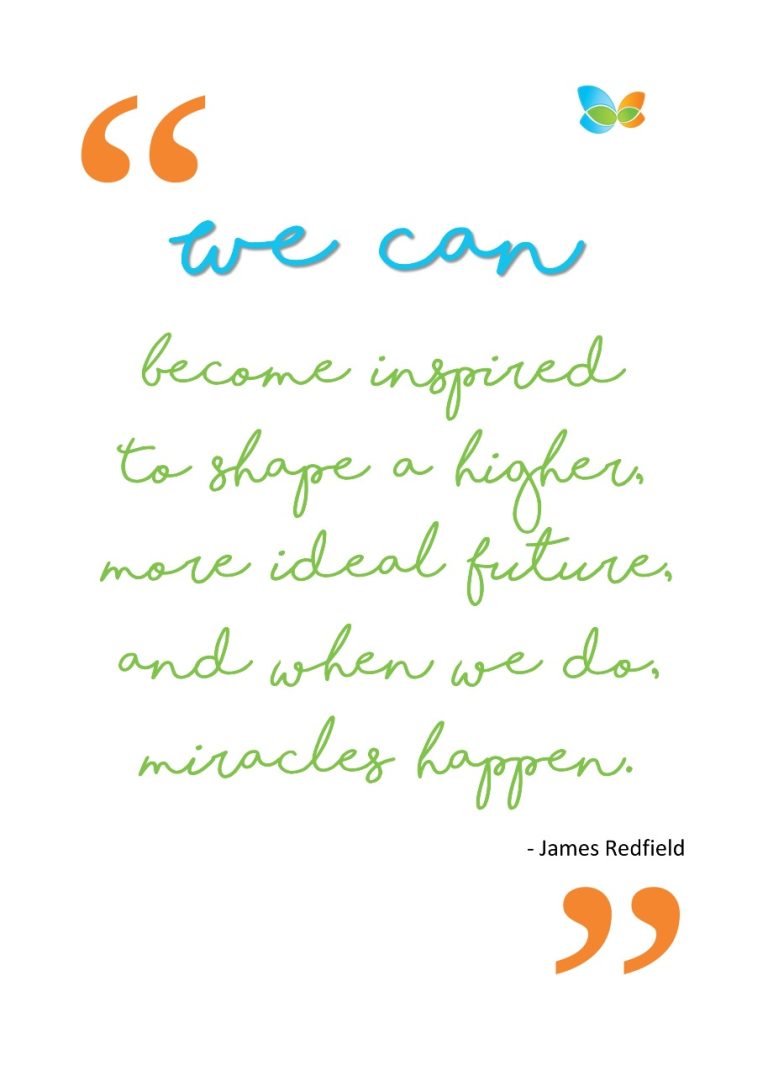 “
we can
become inspired
to shape a higher,
more ideal future,
and when we do,
miracles happen.
- James Redfield
”